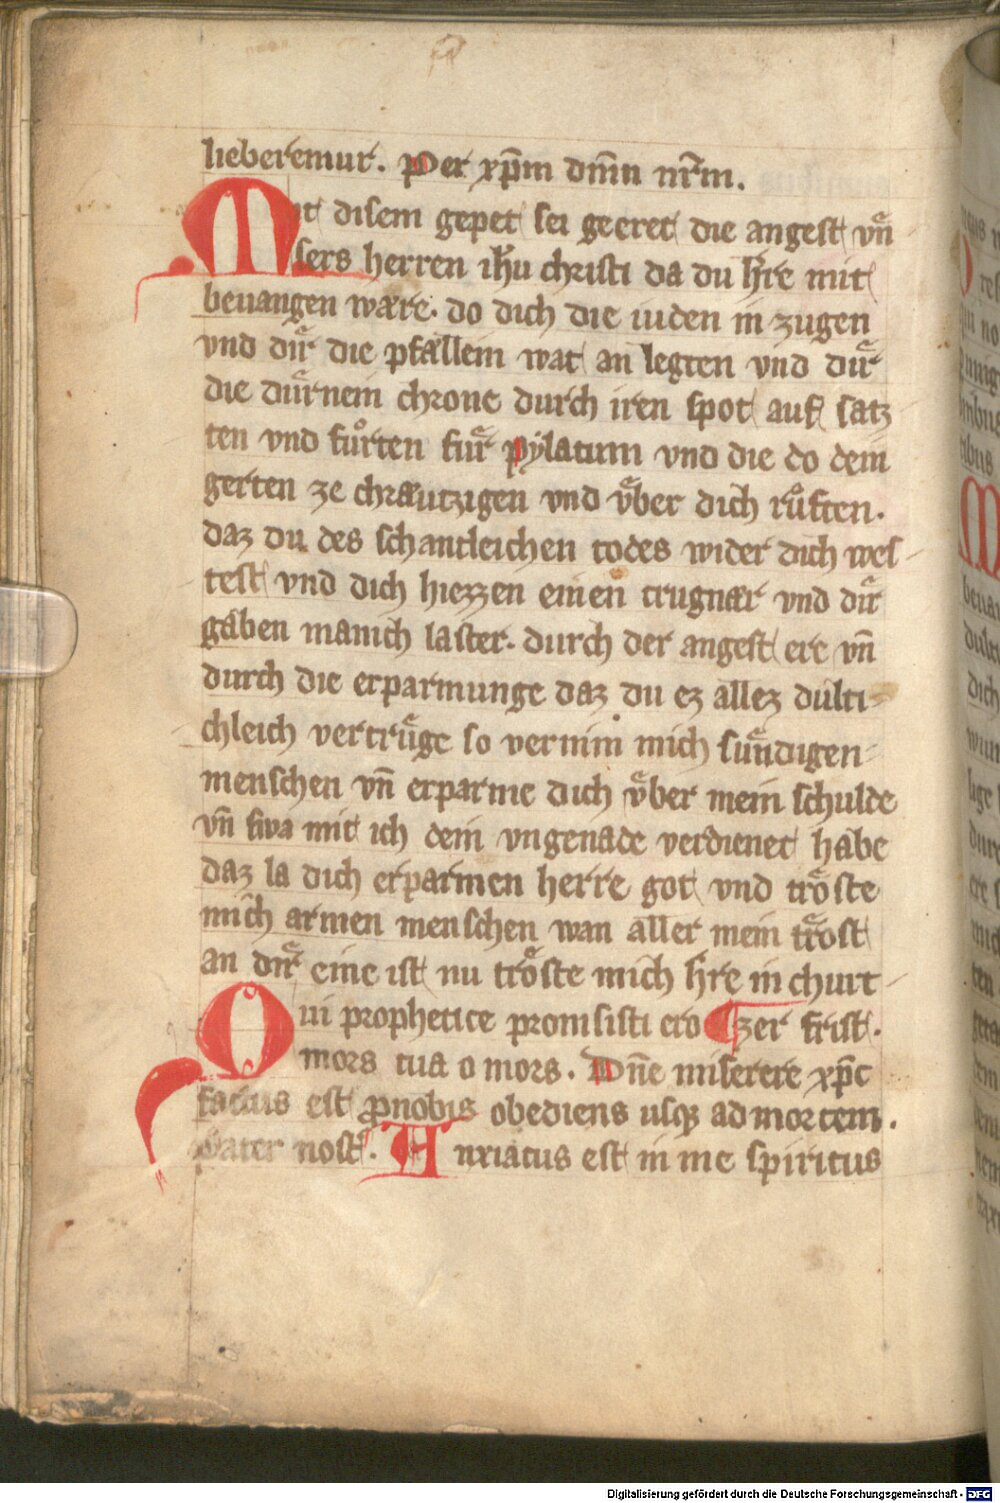 lieberemur. Per xp̄m dn̄m nr̄m.
Mit disem gepet sei geeret die angest vn̄
sers herren ih̄u christi da du h̄re mit
beuangen wære. do dich die iuden in zugen
vnd dir die pfällein wat an legten vnd dir
die dürnein chrone durch iren spot auf satz
ten vnd fůrten für pylatum vnd die do dein
gerten ze chræutzigen vnd vͤber dich růften.
daz du des schantleichen todes wider dich wes
test vnd dich hiezzen einen trugnær vnd dir
gaben manich laster. durch der angest ere vn̄
durch die erparmunge daz du ez allez dulti-
chleich vertrüge so vernim mich sündigen
menschen vn̄ erparme dich vͤber mein schulde
vn̄ swa mit ich dein vngenade verdienet habe
daz la dich erparmen herre got vnd tröste
mich armen menschen wan aller mein tröst
an dir eine ist nu tröste mich h̄re in churt
Qui prophetice promisisti ero zer frist.
mors tua o mors. Dn̄e miserere xp̄c
factus est ꝓnobis obediens usqꝫ ad mortem.
Pater nost̄. Anxiatus est in me spiritus
Digitalisierung gefördert durch die Deutsche Forschungsgemeinschaft - DFG